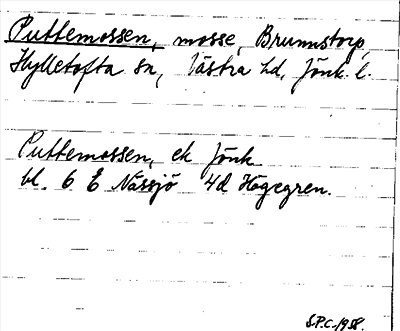 Puttemossen, mosse, Brunnstorp,
Hylletofta sn, Västra hd, Jönk. l.
Puttemossen, ek Jönk
bl. 6 E Nässjö 4d Hagegren.
S.P.C. 1958.